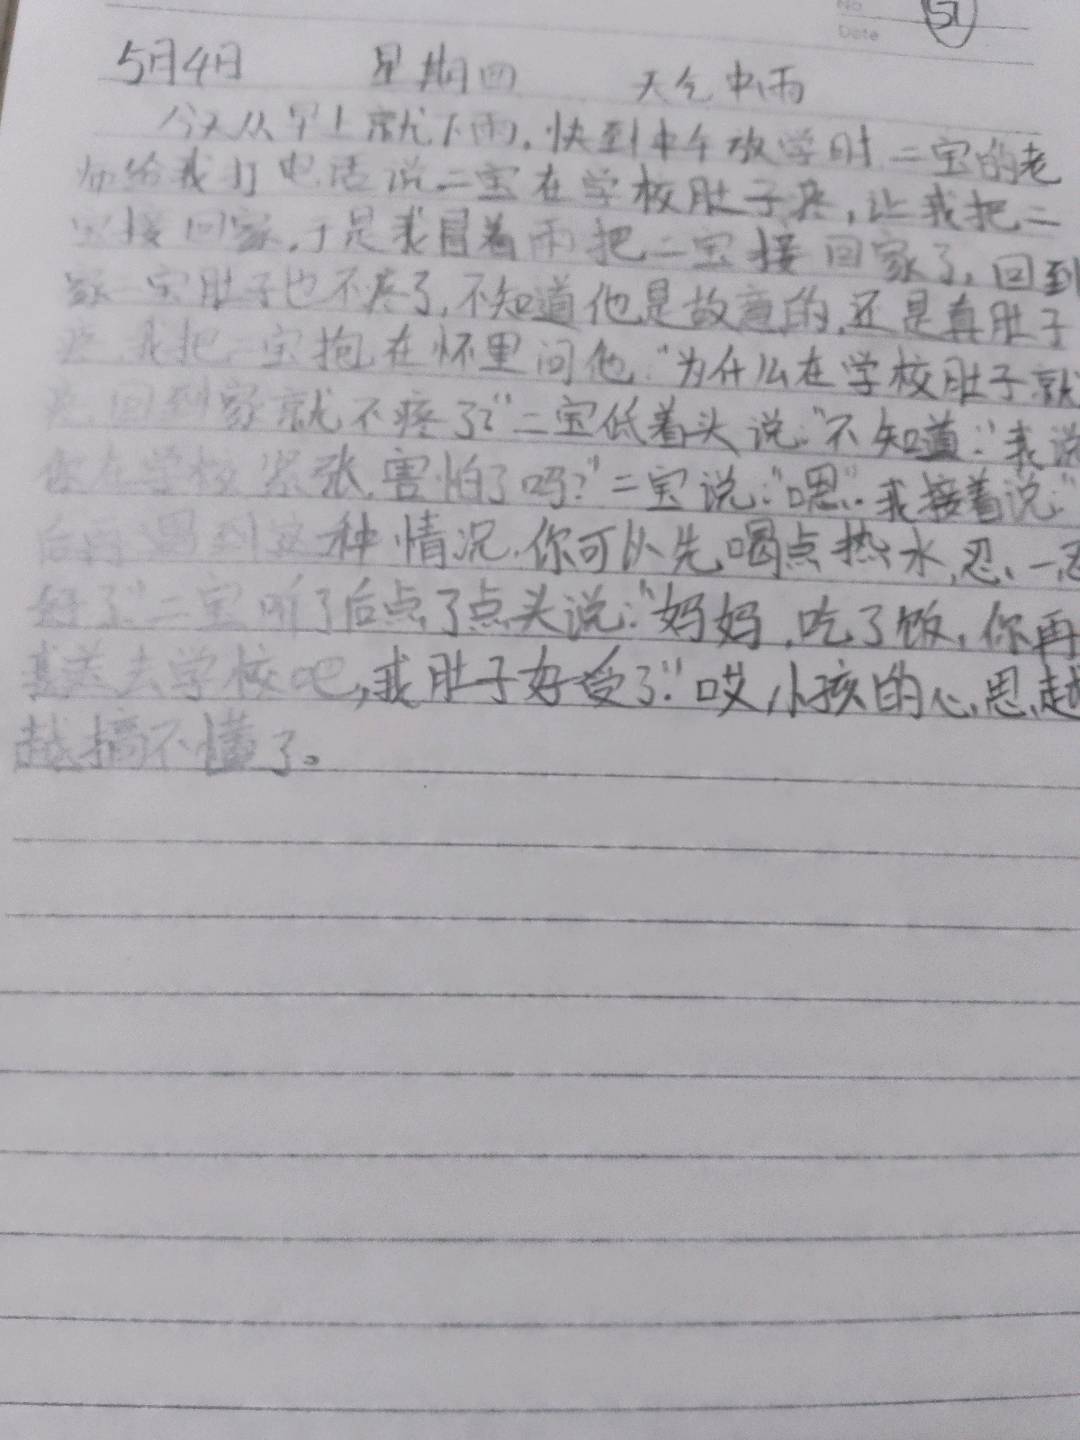 No
Date
51
5月4日 星期四 天气中雨
今天从早上就下雨,快到中午放学时二宝的老
师给我打电话说二宝在学校肚子疼,让我把二
宝接回家,于是我冒着雨把二宝接回家了,回到
家二宝肚子也不疼了,不知道他是故意的,还是真肚子
疼,我把二宝抱在怀里问他:"为什么在学校肚子就
疼,回到家就不疼了?"二宝低着头说:"不知道:"我说
你在学校紧张,害怕了吗?"二宝说:"嗯".我接着说:"
后再遇到这种情况.你可以先喝点热水,忍一忍
好了"二宝听了后点了点头说:"妈妈,吃了饭,你再
我送去学校吧,我肚子好受了."哎,小孩的心思,越
越搞不懂了。